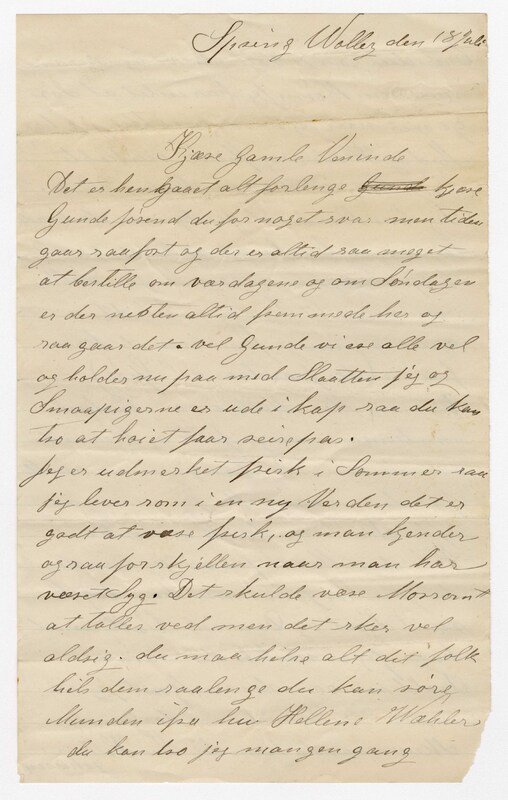 Spring Walley den 18 Juli
Kjære Gamle Veninde
Det er hengaaet alt forlenge Gunde kjære
Gunde førend du for noget svar men tiden
gaar saa fort og der er altid saa meget
at bestille om værdagene og om Søndagen
er der nesten altid fremmede her og
saa gaar det. vel Gunde vi ere alle vel
og holder nu paa med Slaatten jeg og
Smaapigerne er ude i kap saa du kan
tro at hoiet faar
Jeg er udmerket frisk i Sommer saa
jeg lever som i en ny Verden det er
godt at være frisk, og man kjender
ogsaa forskjellen naar man har
været Syg. Det skulde være Morsomt
at talles ved men det sker vel
aldrig. du maa hilse alt dit folk
hils dem saalenge du kan røre
Munden ifra hu Hellene Wahler
du kan tro jeg mangen gang